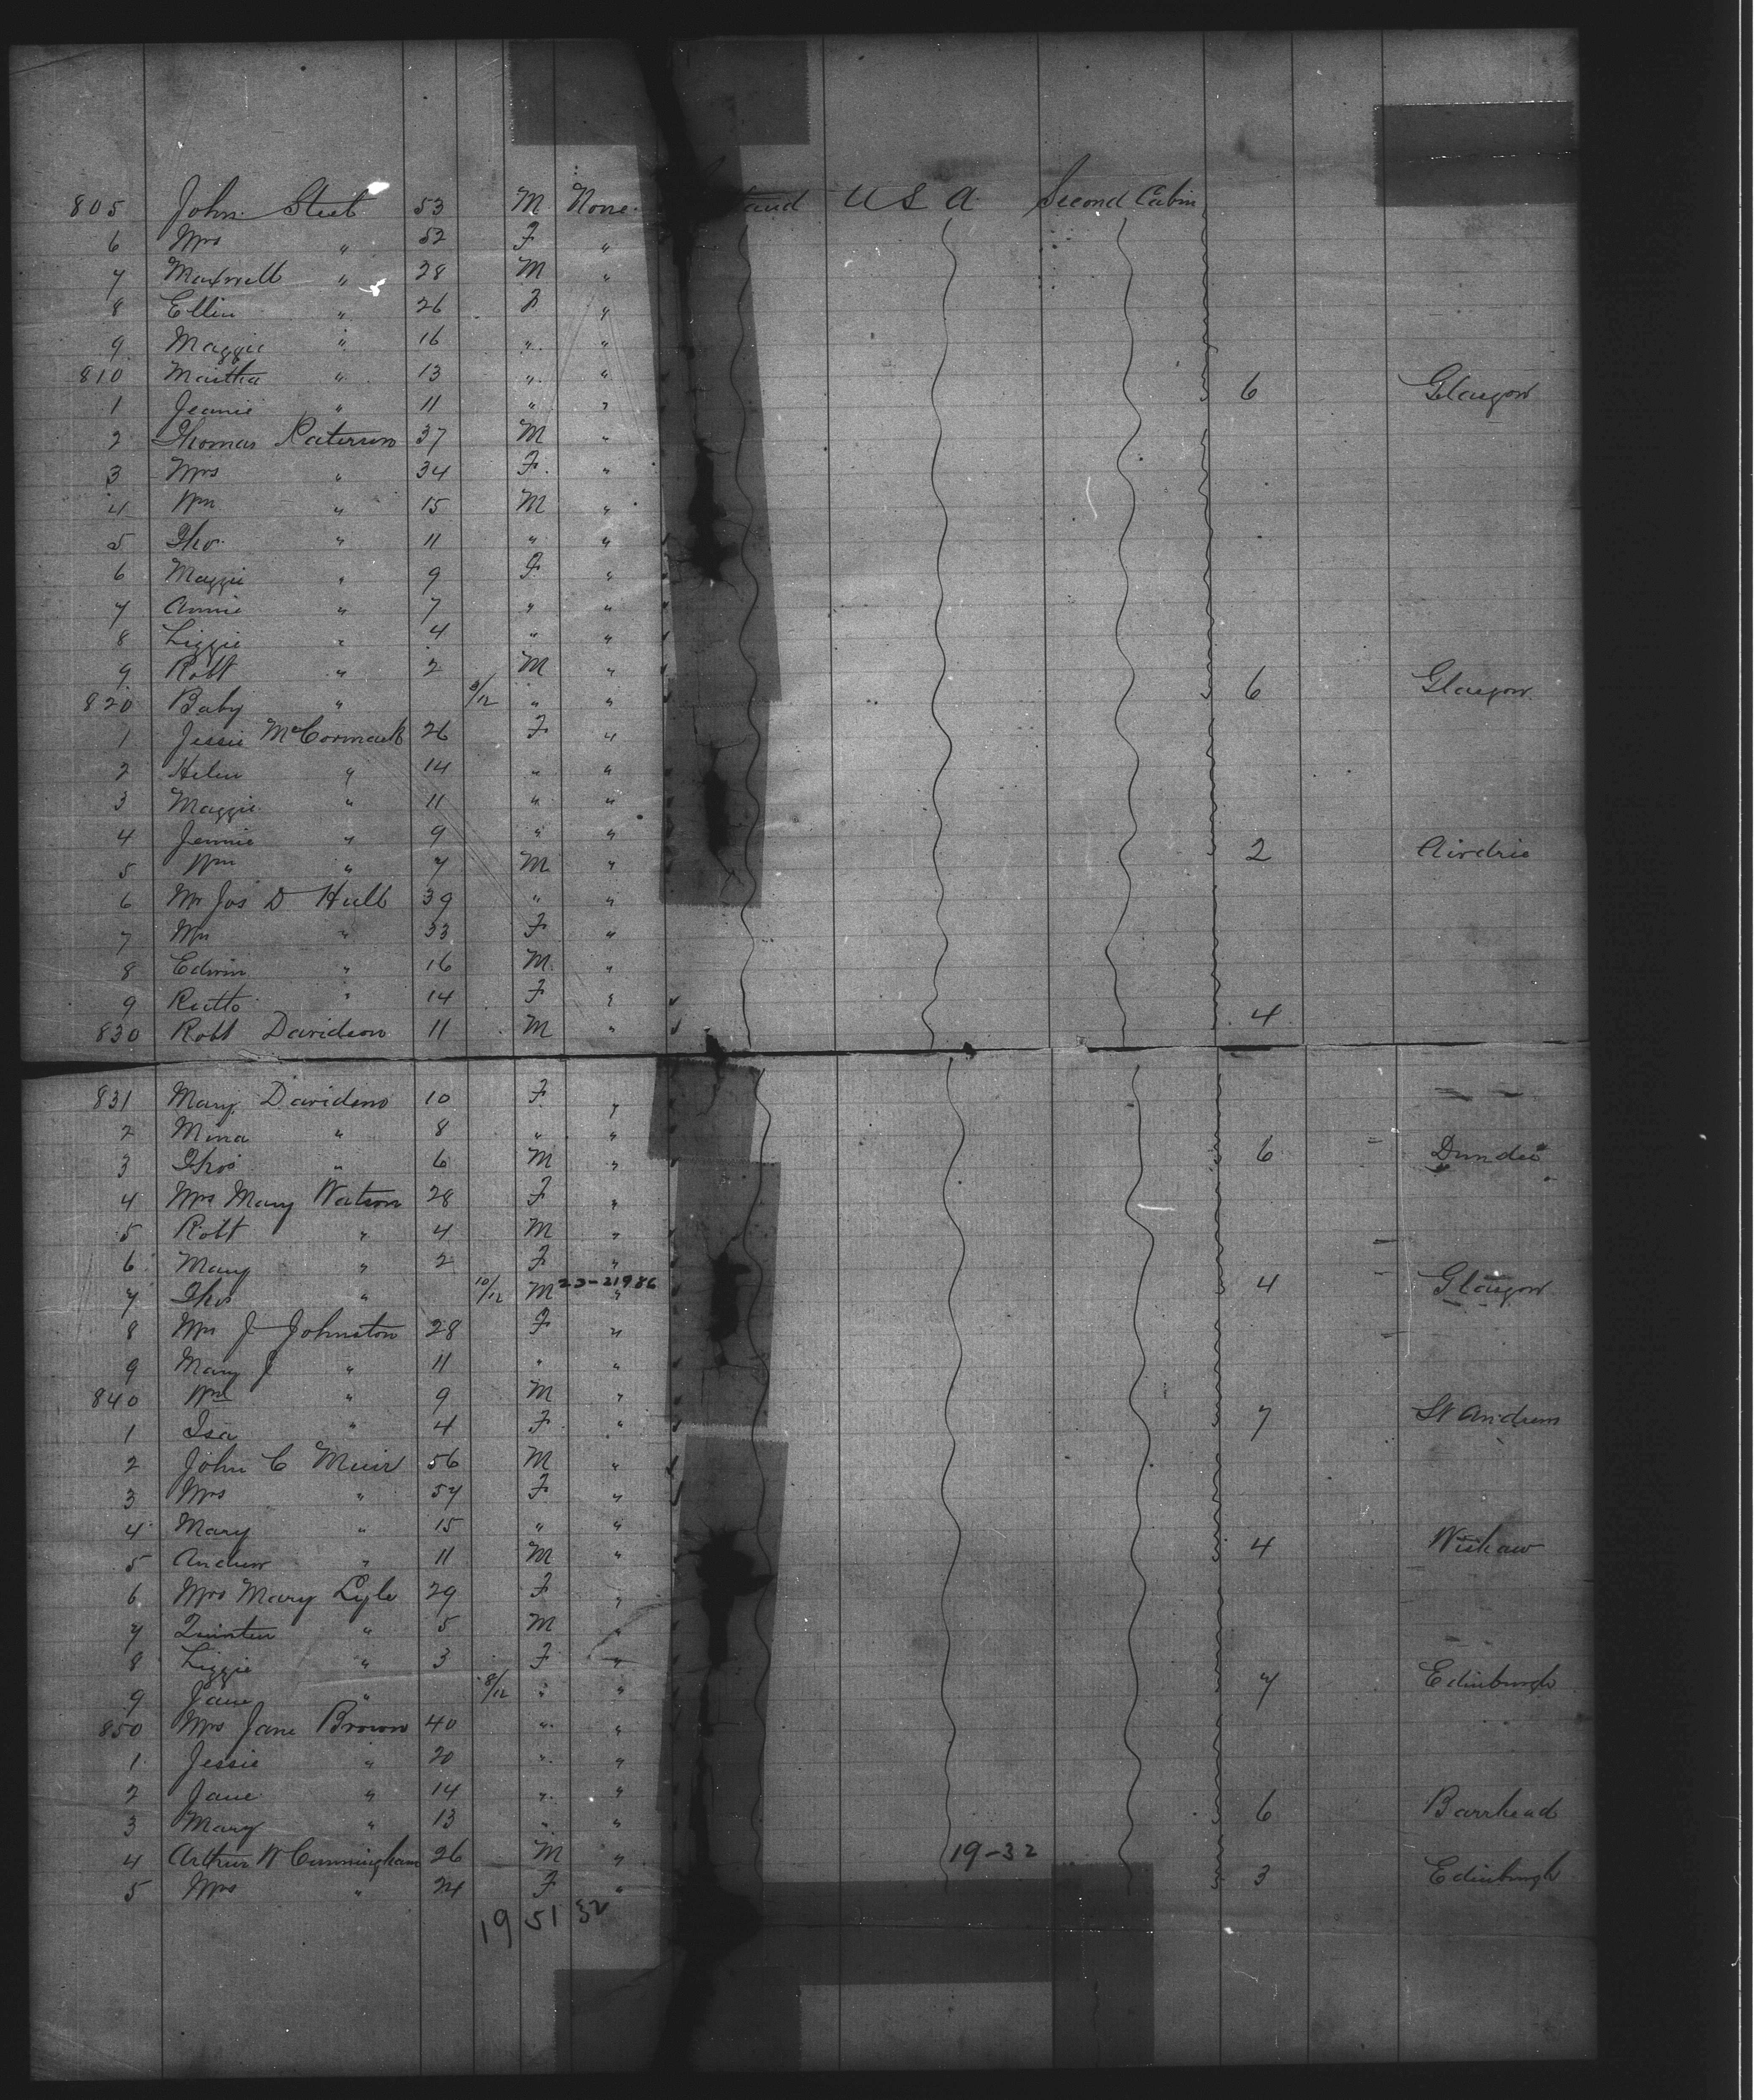 805 John Steel 53 M None. land U S A. Second Cabin
6 Mrs " 52 F "
7 Maxwell " 28 M "
8 Ellen " 26 F "
9 Maggie " 16 " "
810 Martha " 13 " " 6 Glasgow
1 Jeanie " 11 " "
2 Thomas Paterson 37 M "
3 Mrs " 34 F "
4 Wm " 15 M "
5 Tho. " 11 " "
6 Maggie " 9 F "
7 Annie " 7 " "
8 Lizzie " 4 " "
9 Robt " 2 M "
820 Baby " /12 " " 6 Glasgow
1 Jessie McCormack 26 F "
2 Helen " 14 " "
3 Maggie " 11 " "
4 Jennie " 9 " "
5 Wm " 7 M " 2 Airdrie
6 Mr Jos D Hull 39 " "
7 Mrs " 33 F "
8 Edwin " 16 M "
9 " 14 F "
830 Robt Davidson 11 M " 4
831 Mary Davidson 10 F "
2 Mina " 8 " "
3 Thos " 6 M " 6 Dundee
4 Mrs Mary Watson 28 F "
5 Robt " 4 M "
6 Mary " 2 F "
7 Thos " 10/12 M 23-21986 " 4 Glasgow
8 Mrs J Johnston 28 F "
9 Mary J " 11 " "
840 Wm " 9 M "
1 Isa " 4 F " 7 St Andrews
2 John C Muir 56 M "
3 Mrs " 54 F "
4 Mary " 15 " "
5 Andrew " 11 M " 4 Wishaw
6 Mrs Mary Lyle 29 F "
7 Quinten " 5 M "
8 Lizzie " 3 F "
9 Jane " 8/12 " " 7 Edinburgh
850 Mrs Jane Brown 40 " "
1 Jessie " 20 " "
2 Jane " 14 " "
3 Mary " 13 " " 6 Barrhead
4 Arthur W Cunningham 26 M " 19-32
5 Mrs " 24 F " 3 Edinburgh
19 51 32